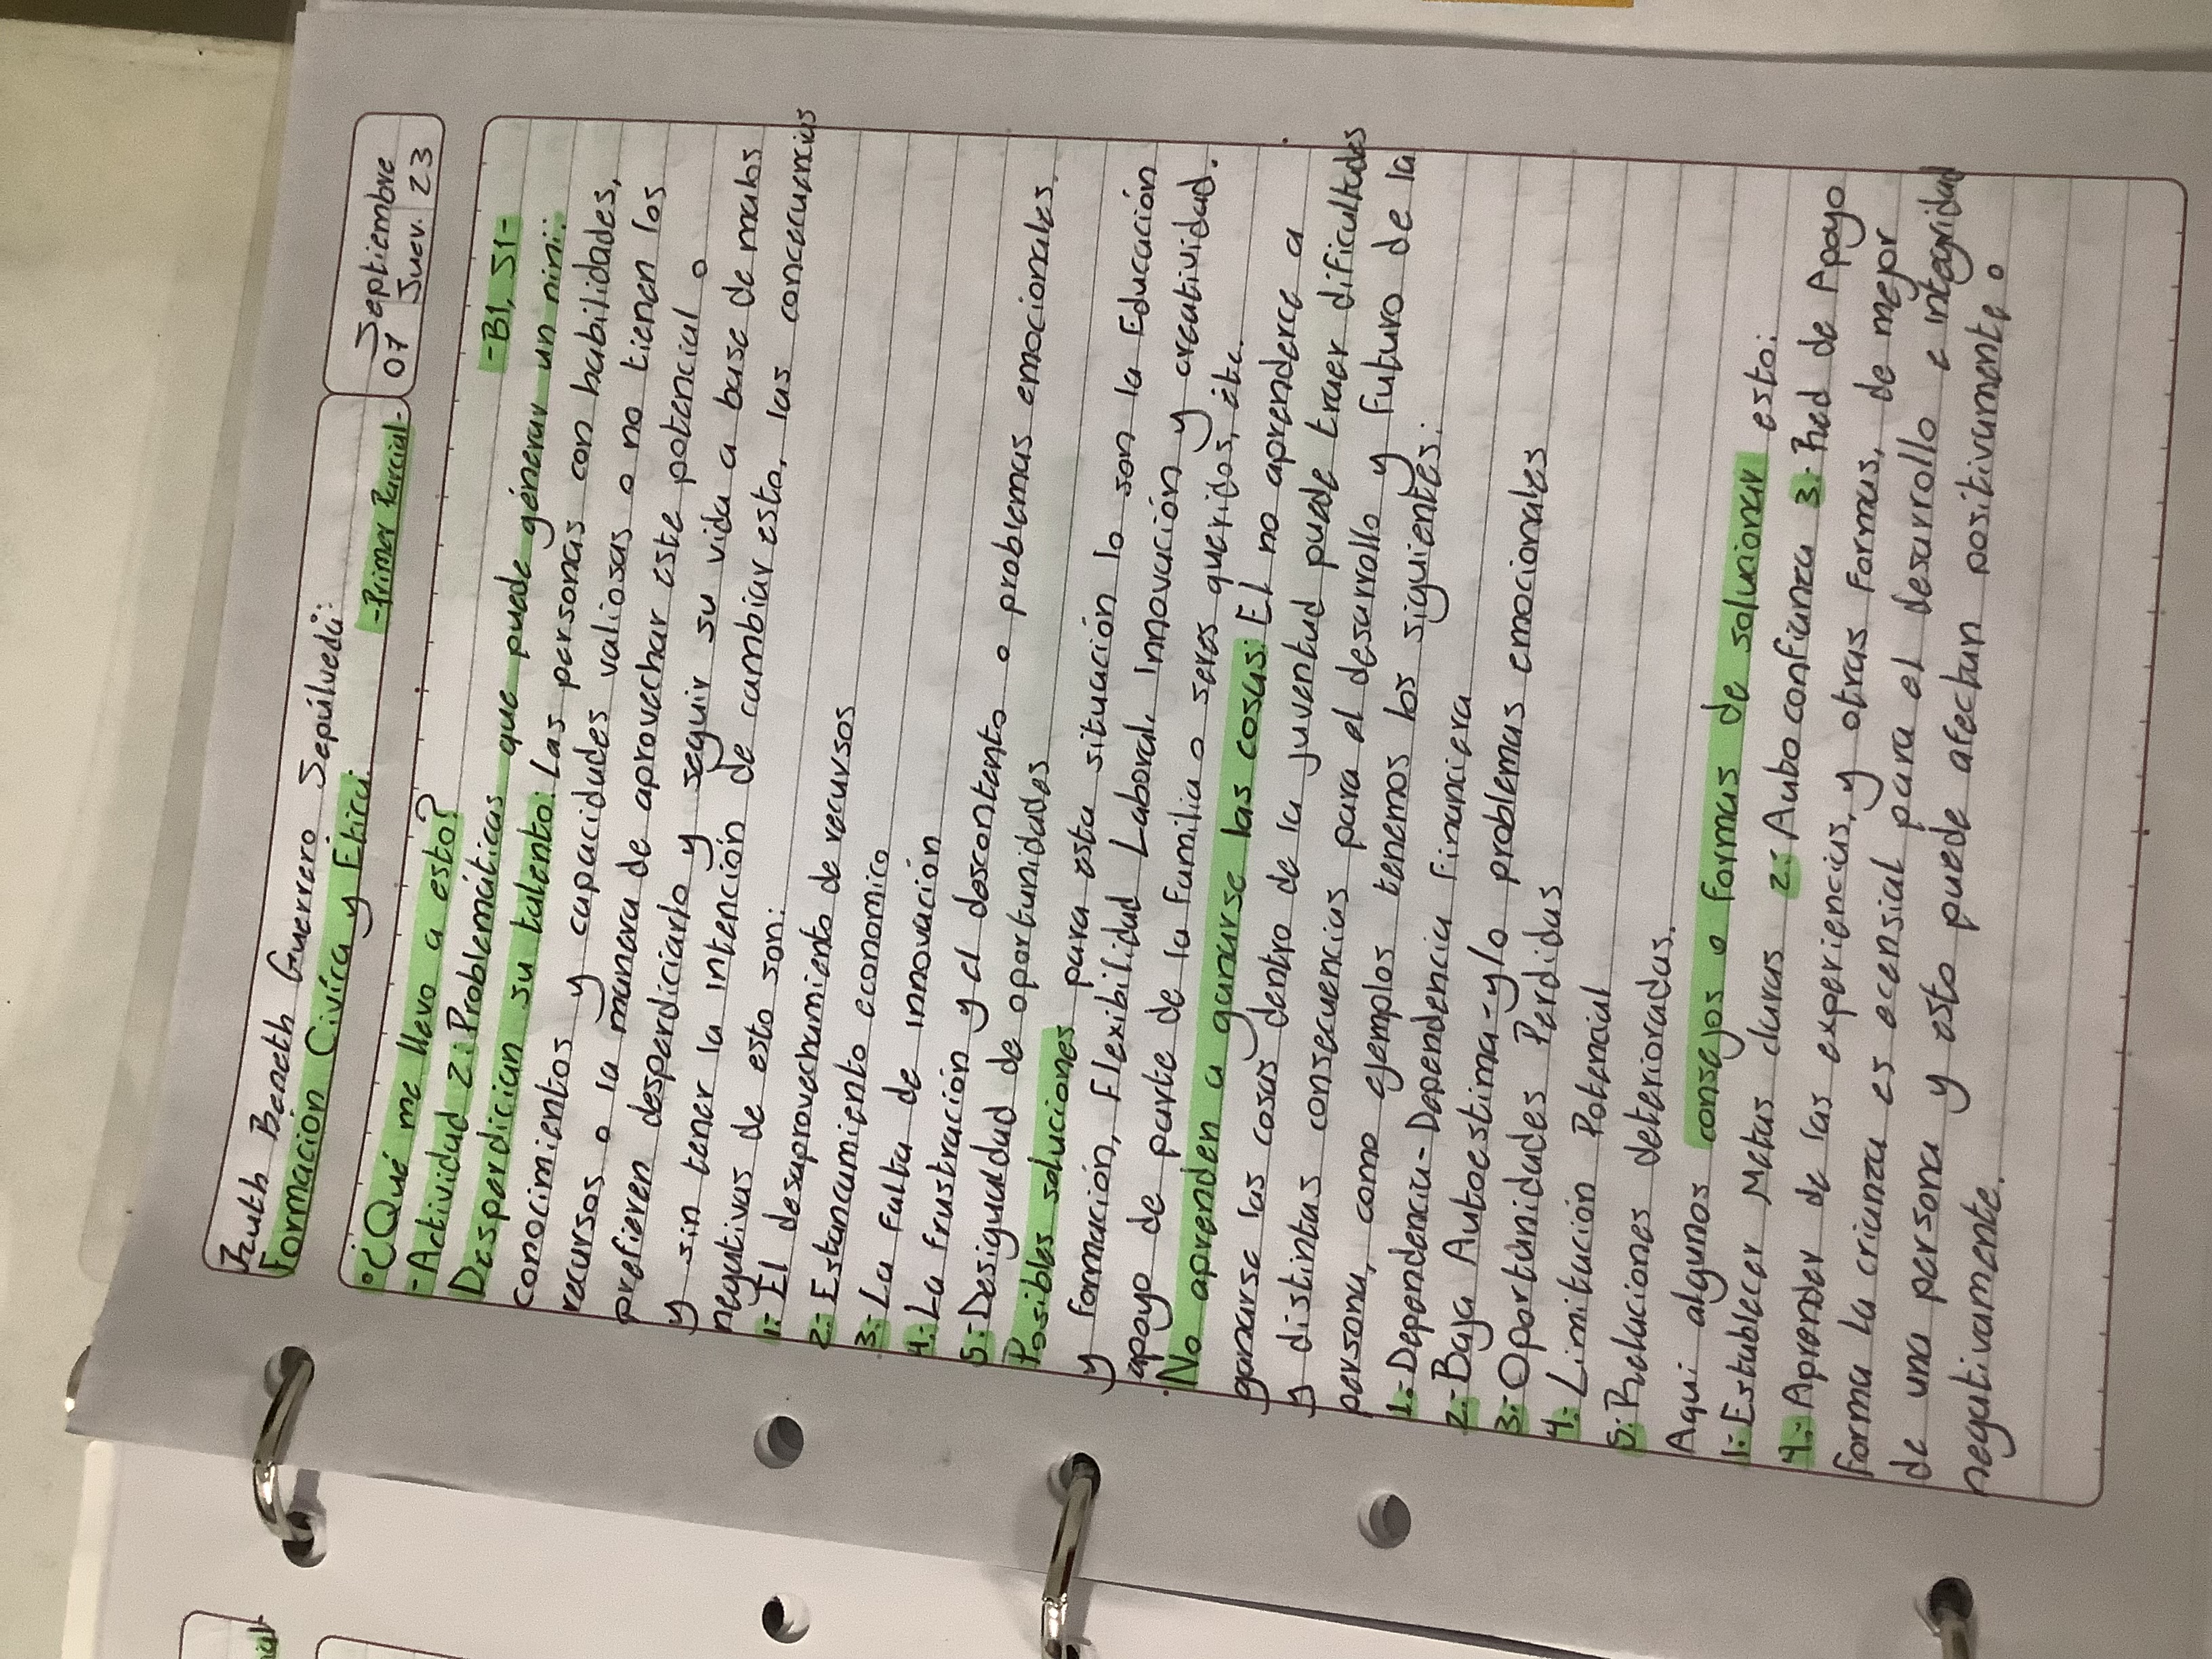 Guerrero Sepúlveda:
Septiembre
Formación Civíca y Ética.
-Primer Parcial-
07 Juev. 23
•¿Qué me llevo a esto?
-B1, S1-
-Actividad 2: Problemáticas que puede génerar un nini:
Desperdician su talento: Las personas con habilidades,
conocimientos y capacidades valiosas o no tienen los
recursos, o la manera de aprovechar este potencial o
prefieren desperdiciarlo y seguir su vida a base de malos
y sin tener la intención de cambiar esto, las concecuencias
negativas de esto son:
1:- El desaprovechamiento de recursos
2:- Estancamiento economico
3:- La Falta de innovación
4:- La frustración y el descontento o problemas emocionales.
5:- Desigualdad de oportunidades
Posibles soluciones para esta situación lo son la Educación
y formación, Flexibilidad Laboral, Innovación y creatividad.
apoyo de parte de la familia o seres queridos, étc.
No aprenden a ganarse las cosas: El no aprenderce a
ganarse las cosas dentro de la juventud puede traer dificultades
y distintas consecuencias para el desarrollo y futuro de la
persona, como ejemplos tenemos los siguientes:
1:- Dependencia - Dependencia Financiera
2:- Baja Autoestima - y/o problemas emocionales
3:- Oportunidades Perdidas
4:- Limitación Potencial
5:- Relaciones deterioradas.
Aqui algunos consejos o formas de solucionar esto:
1:- Establecer Metas claras 2:- Autoconfianza 3:- Red de Apoyo
4:- Aprender de las experiencias, y otras formas, de mejor
forma la crianza es ecensial para el desarrollo e integridad
de una persona y esto puede afectan positivamente o
negativamente.